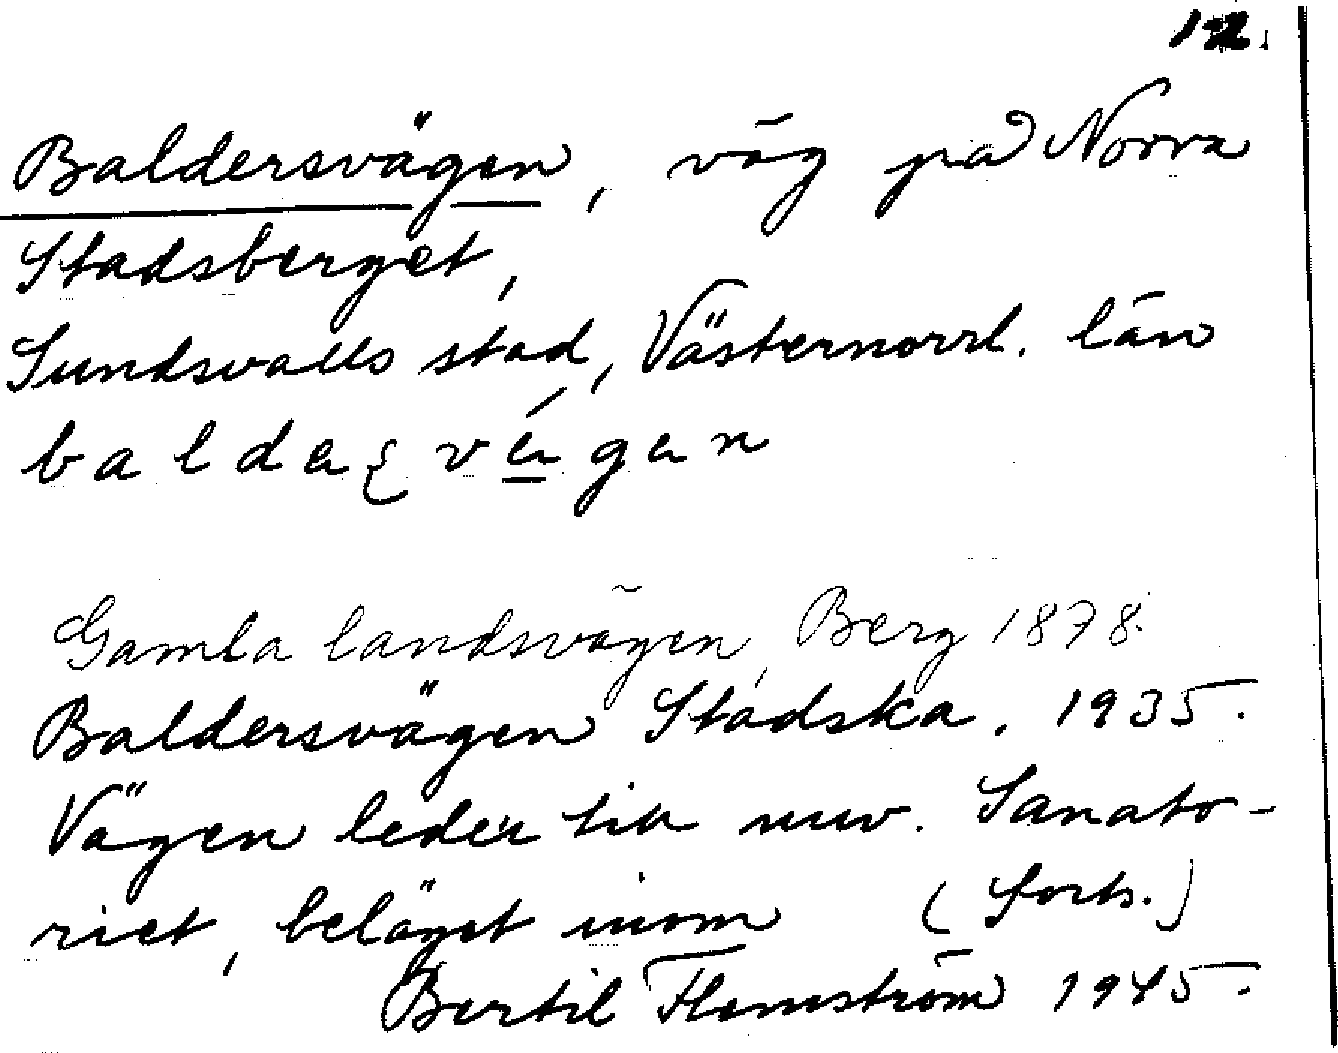 12.
Baldersvägen, väg på Norra
Stadsberget,
Sundsvalls stad, Västernorrl. län
Gamla landsvägen, Berg 1878.
Baldersvägen Stadska. 1935.
Vägen leder till nuv. Sanato-
riet, beläget inom (forts.)
Bertil Flemström 1945.